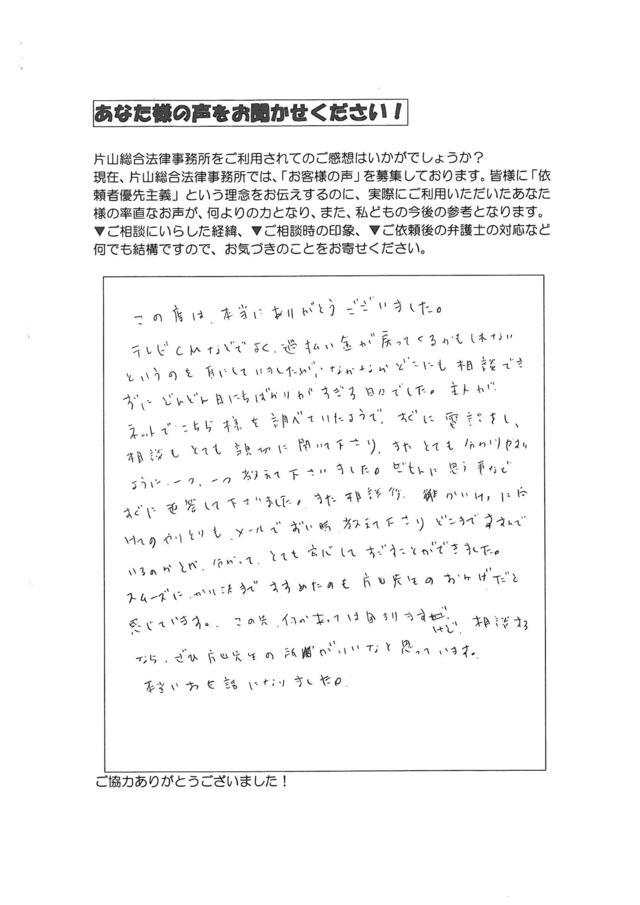 あなた様の声をお聞かせください！
片山総合法律事務所をご利用されてのご感想はいかがでしょうか？
現在、片山総合法律事務所では、「お客様の声」を募集しております。皆様に「依
頼者優先主義」という理念をお伝えするのに、実際にご利用いただいたあなた
様の率直なお声が、何よりの力となり、また、私どもの今後の参考となります。
▼ご相談にいらした経緯、▼ご相談時の印象、▼ご依頼後の弁護士の対応など
何でも結構ですので、お気づきのことをお寄せください。
この度は、本当にありがとうございました。
テレビCMなどでよく、過払い金が戻ってくるかもしれない
というのを耳にしていましたが、なかなかどこにも相談でき
ずにどんどん日にちばかりがすぎる日々でした。主人が
ネットでこちら様を調べていたようで、すぐに電話をし、
相談もとても親切に聞いて下さり、またとても分かりやすい
ように、一つ、一つ教えて下さいました。ぎもんに思う事など
すぐに返答して下さいました。また相談後、
けてのやりとりも、メールで教えて下さりどこまですすんで
いるのかとか、分かって、とても安心してすごすことができました。
スムーズに、かい決まですすめたのも片山先生のおかげだと
感じています。この先、何かあっては困りますけど、相談する
なら、ぜひ片山先生の所がいいなと思っています。
本当にお世話になりました。
ご協力ありがとうございました！